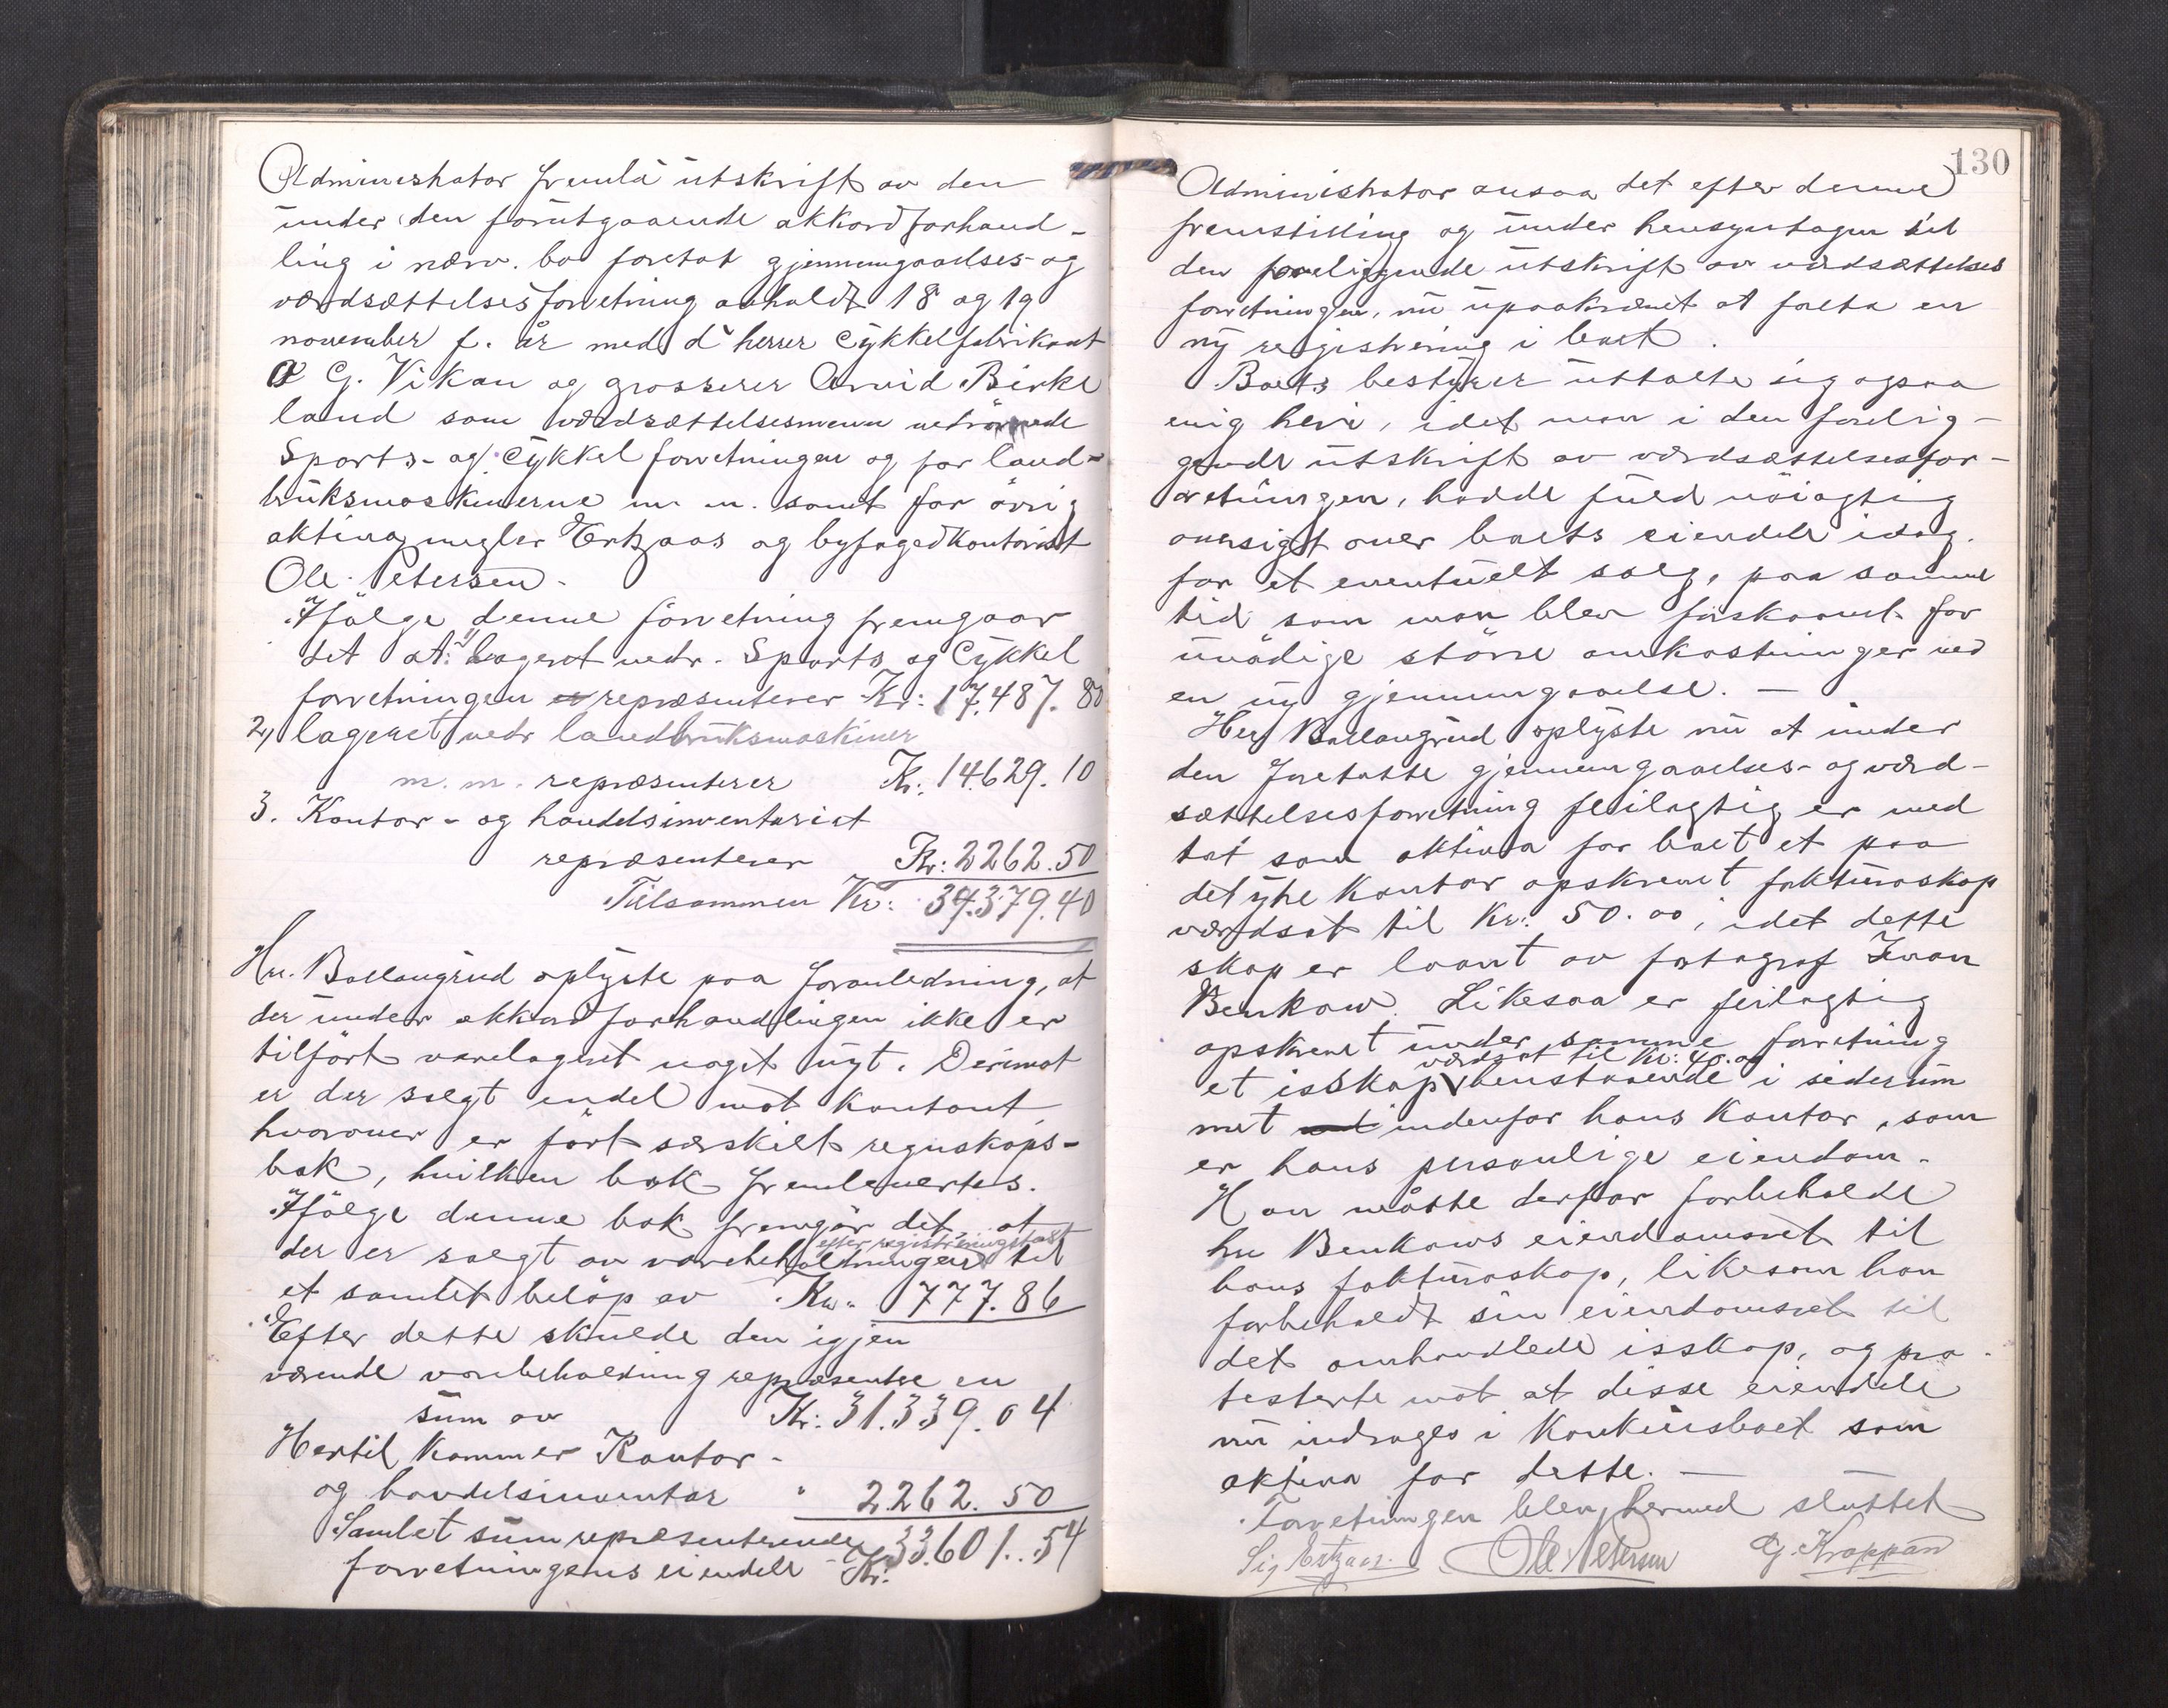 Administrator fremla utskrift av den
under den forutgaaende akkordforhand-
ling i nærv. bo foretat gjennemgaaelses- og
værdsættelsesforretning avholdt 18 og 19
november f. år med d'herrer Cykkelfabrikant
O G. Vikan og grosserer Arvid Birke
land som værdsættelsesmenn vedrörende
Sports- og Cykkel forretningen og for land-
bruksmaskinerne m. m. samt for övrig
aktiva megler Ertzaas og byfogedkontorist
Ole Petersen.
Ifölge denne forretning fremgaar
det at: 1) lageret vedr. Sports og Cykkel
forretningen repræsenterer Kr: 17.487.80
2) lageret vedr landbruksmaskiner
m. m. repræsenterer Kr: 14.629.10
3. Kontor- og handelsinventariet
repræsenterer Kr: 2262.50
Tilsammen Kr: 34.379.40
Hr. Ballangrud oplyste paa foranledning, at
der under akkordforhandlingen ikke er
tilfört varelageret noget nyt. Derimot
er der solgt endel mot kontant
hvorover er fört særskilt regnskaps-
bok, hvilken bok fremlevertes.
Ifölge denne bok fremgår det, at
efter registreringstast
der er solgt av varebeholdningen til
et samlet belöp av Kr. 777.86
Efter dette skulde den igjen
værende varebeholdning repræsentere en
sum av Kr: 31.339.04
Hertil kommer Kontor-
og handelsinventar " 2262.50
Samlet sum repræsenterende
forretningens eiendele Kr. 33.601.54
130
Administrator ansaa det efter denne
fremstilling og under hensyntagen til
den foreliggende utskrift av værdsættelses
forretningen, nu upaakrævet at foreta en
ny registrering i boet.
Boets bestyrer uttalte sig ogsaa
enig heri, idet man i den forelig-
gende utskrift av værdsættelsesfor-
retningen, hadde fuld nöiagtig
oversigt over boets eiendele idag.
for et eventuelt salg, paa samme
tid som man blev forskaanet for
unödige större omkostninger ved
en ny gjennemgaaelse. —
Herr Ballangrud oplyste nu at under
den foretatte gjennemgaaelses- og værd-
sættelsesforretning feilagtig er med
tat som aktiva for boet et paa
det ytre kontor opskrevet fakturaskap
værdsat til Kr: 50.00, idet dette
skap er laant av fotograf Ivan
Benkow. Likesaa er feilagtig
opskrevet under samme forretning
værdsat til Kr: 40.00
et isskap henstaaende i siderum
met indenfor hans Kontor, som
er hans personlige eiendom.
Han måtte derfor forbeholde
hr Benkows eiendomsret til
hans fakturaskap, likesom han
forbeholdt sin eiendomsret til
det omhandlede isskap, og pro-
testerte mot at disse eiendele
nu indrages i Konkursboet som
aktiva for dette. —
Forretningen blev hermed sluttet
Sig Ertzaas. Ole Petersen G. Kroppan